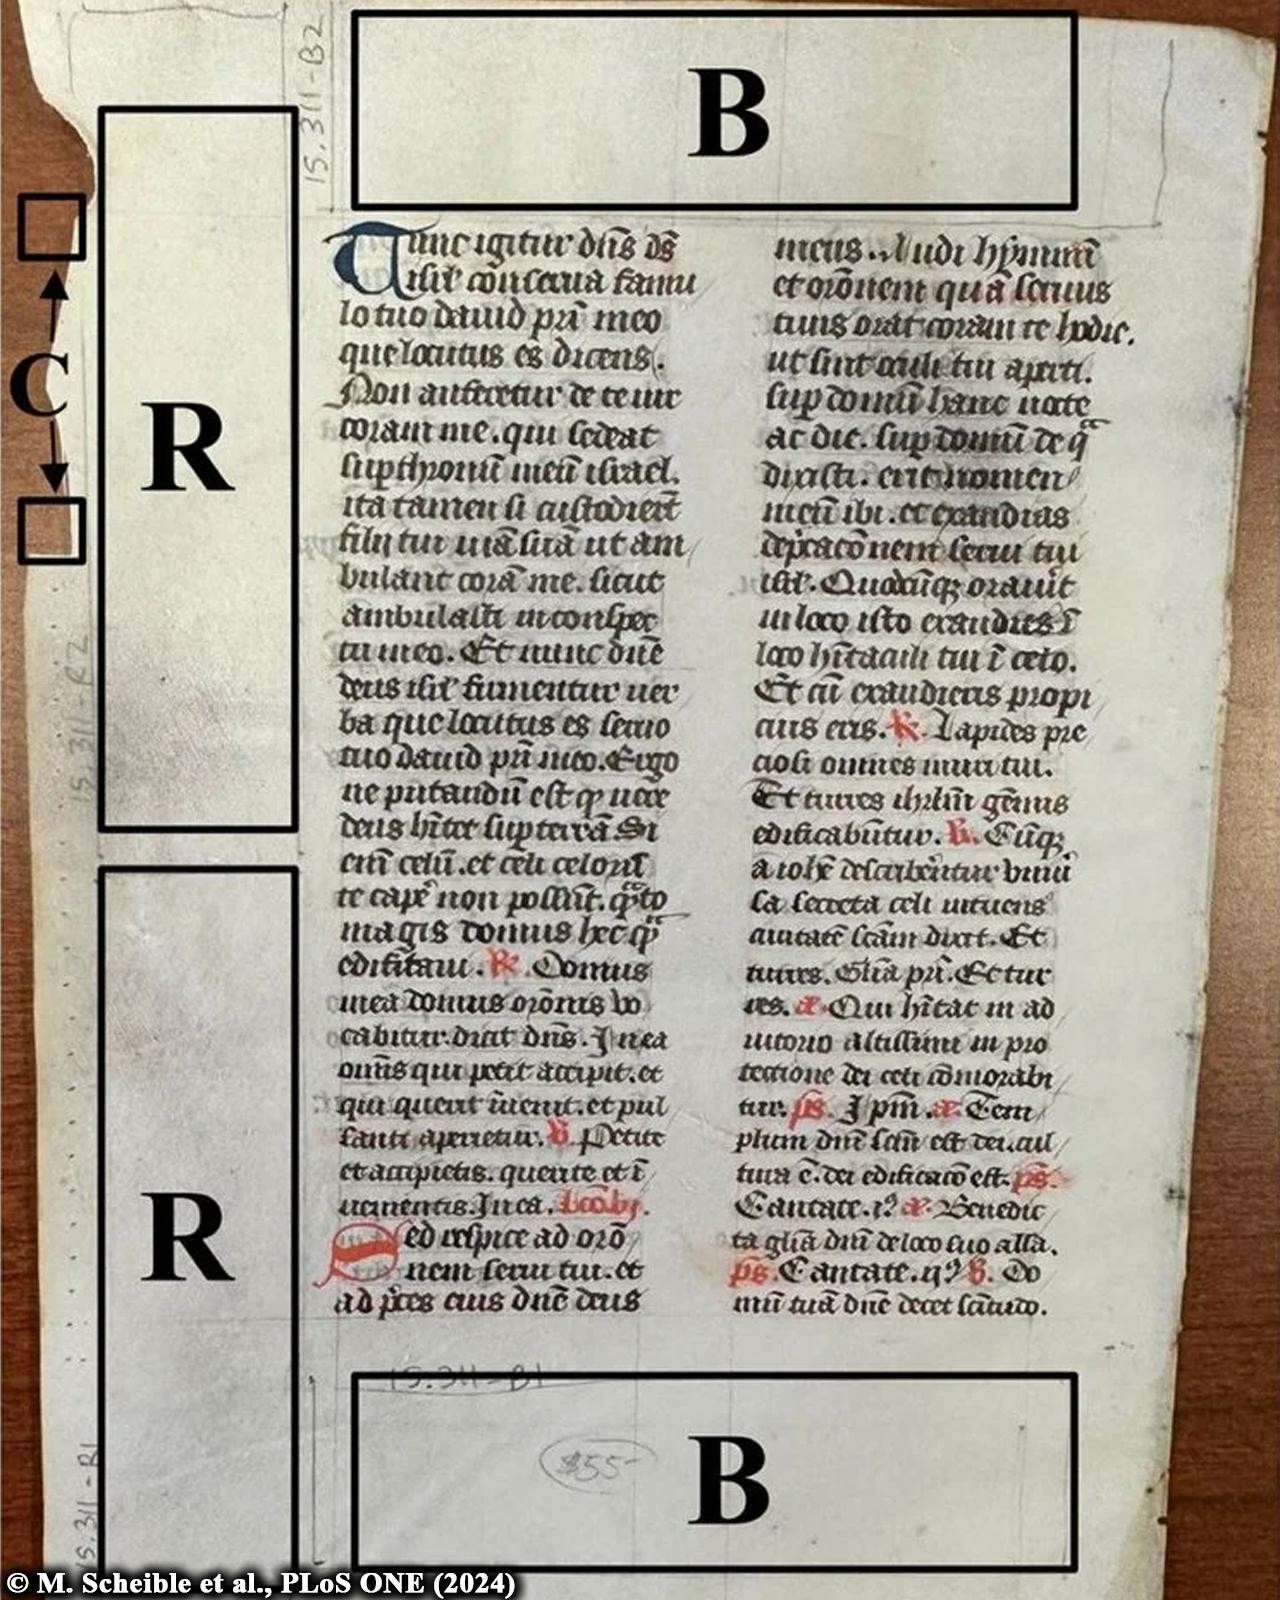 15.311-B2
B
R
C
15.311-R2
R
15.311-B1
Tunc igitur dn̄s ds̄
isrl̄ cōnserua famu
lo tuo dauid pr̄i meo
que locutus es dicens.
Non auferetur de te uir
coram me. qui sedeat
sup thronū meū israel.
ita tamen si custodierīt
filij tui uiā suā ut am
bulant corā me. sicut
ambulasti in conspec
tu meo. Et nunc dn̄e
deus isrl̄ firmentur uer
ba que locutus es seruo
tuo dauid pr̄i meo. Ergo
ne putandū est qp uere
deus hītet sup terrā Si
enī celū. et celi celorū
te cape non possūt. qͣto
magis domus hec qͣ
edificaui. R. Domus
mea domus orōnis vo
cabitur dicit dn̄s. In ea
omīs qui petit accipit. et
qui querit īuenit. et pul
santi aperietur. V. Petite
et accipietis. querite et ī
uenientis. In ea. lcō. bj.
Sed respice ad orō
nem serui tui. et
ad p̄ces eius dn̄e deus
meus. Audi hymnū
et orōnem quā seruus
tuus orat coram te hodie.
ut sint oculi tui aperti.
sup domū hanc nocte
ac die. sup domū de qͣ
dixisti. erit nomen
meū ibi. et exaudias
dep̄cacōnem serui tui
isrl̄. Quodcūq; orauīt
in loco isto exaudies ī
loco hītaculi tui ī celo.
Et cū exaudieris propi
cius eris. R. Lapides pre
ciosi omnes muri tui.
Et turres ihrl̄m gēmis
edificabūtur. V. Cūq;
a iohē describerētur vniu
sa secreta celi intuens
ciuitatē scām dixit. Et
turres. Glīa pr̄i. Et tur
res. a. Qui hītat in ad
iutorio altissimi in pro
tectione dei celi cōmorabi
tur. ps. Ipm̄. a. Tem
plum dn̄i scm̄ est dei cul
tura ē. dei edificacō est. ps.
Cantate. i⁹ a. Benedic
ta glīa dn̄i de loco suo alla.
ps. Cantate. ij⁹ V. Do
mū tuā dn̄e decet scītudo.
15.311-B1
$55-
B
© M. Scheible et al., PLoS ONE (2024)